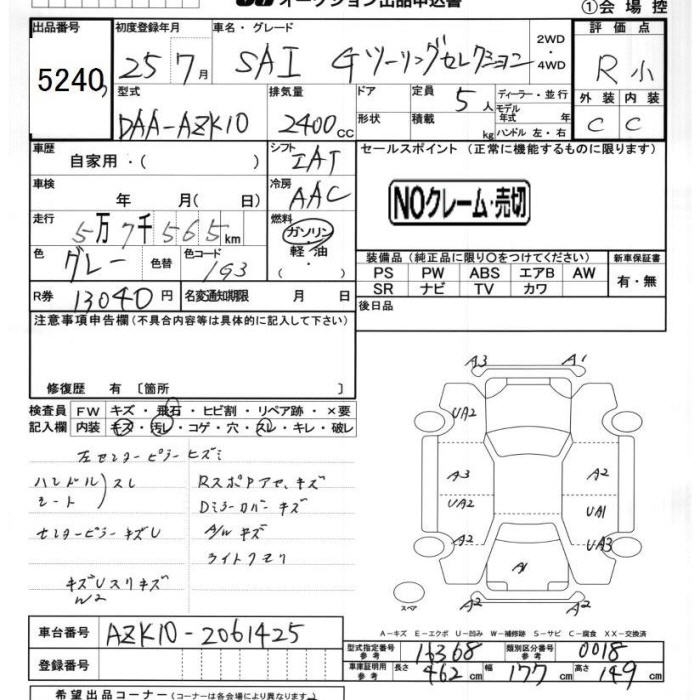 オークション出品申込書
①会場控
出品番号 初度登録年月 車名・グレード 2WD・4WD 評価点
5240 25 7月 SAI Gツーリングセレクション R小
型式 排気量 ドア 定員 5人 ディーラー・並行 外装 内装
DAA-AZK10 2400cc 形状 積載 kg モデル年式 年 ハンドル 左・右 C C
車歴 自家用・( ) シフト IAT セールスポイント (正常に機能するものに限ります)
車検 年 月( 日) 冷房 AAC NOクレーム・売切
走行 5万7千565km 燃料 ガソリン・軽油・( )
色 グレー 色替 色コード 1G3 装備品(純正品に限り○をつけてください) 新車保証書
PS PW ABS エアB AW 有・無
SR ナビ TV カワ
R券 13040円 名変通知期限 月 日 後日品
注意事項申告欄(不具合内容等は具体的に記入して下さい)
修復歴 有 〔箇所 〕
検査員記入欄 FW キズ・飛石・ヒビ割・リペア跡・×要
内装 キズ・汚レ・コゲ・穴・スレ・キレ・破レ
左センターピラーヒズミ
ハンドル シート スレ
RスポPアセ、キズ
Dミラーカバーキズ
センターピラーキズU
A/Wキズ
ライトクモリ
キズUスリキズ
W2
A3 A1
UA2
A3 A2
UA2 UA1
A2 UA3
A1
A2 A2
スペア
A-キズ E-エクボ U-凹み W-補修跡 S-サビ C-腐食 XX-交換済
車台番号 AZK10-2061425
登録番号
型式指定番号参考 16368 類別区分番号参考 0018
車庫証明用参考 長さ 462cm 幅 177cm 高さ 149cm
希望出品コーナー(コーナーは各会場により異なります